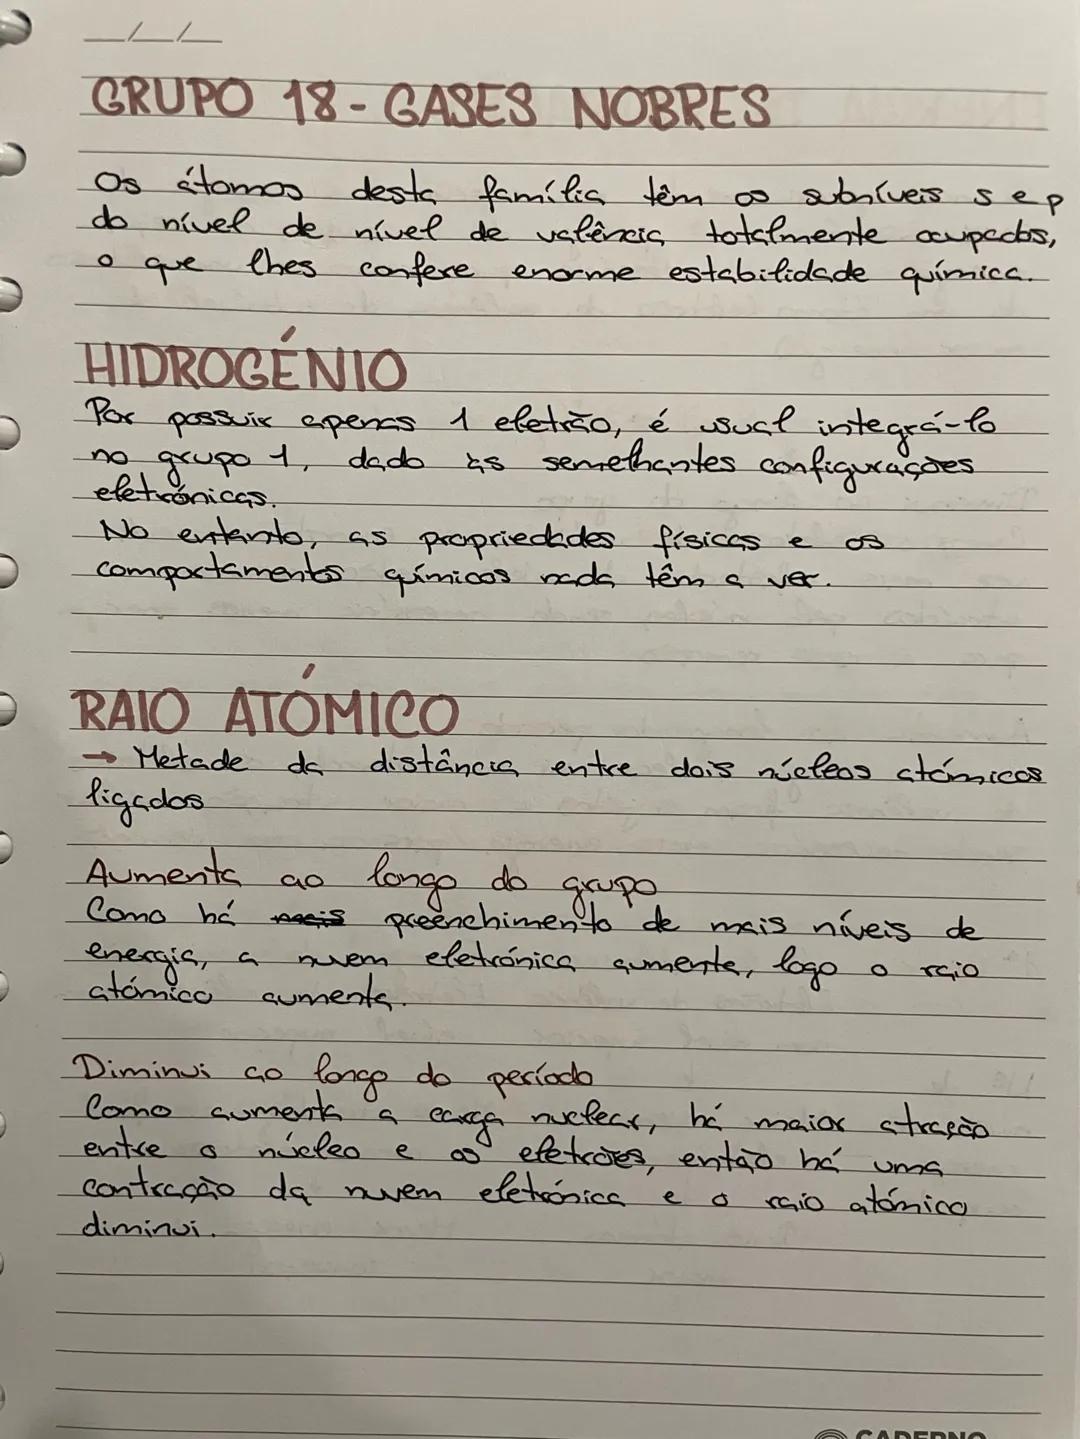 GRUPO 18 - GASES NOBRES
Os átomos desta família têm os subníveis s e p
do nível de nível de valência totalmente ocupados,
o que lhes confere enorme estabilidade química.
HIDROGÉNIO
Por possuir apenas 1 eletrão, é usual integrá-lo
no grupo 1, dado às semelhantes configurações
eletrónicas.
No entanto, as propriedades físicas e os
comportamentos químicos nada têm a ver.
RAIO ATÓMICO
→ Metade da distância entre dois núcleos atómicos
ligados
Aumenta ao longo do grupo
Como há mais preenchimento de mais níveis de
energia, a nuvem eletrónica aumenta, logo o raio
atómico aumenta.
Diminui ao longo do período
Como aumenta a carga nuclear, há maior atração
entre o núcleo e os eletrões, então há uma
contração da nuvem eletrónica e o raio atómico
diminui.
CADERNO